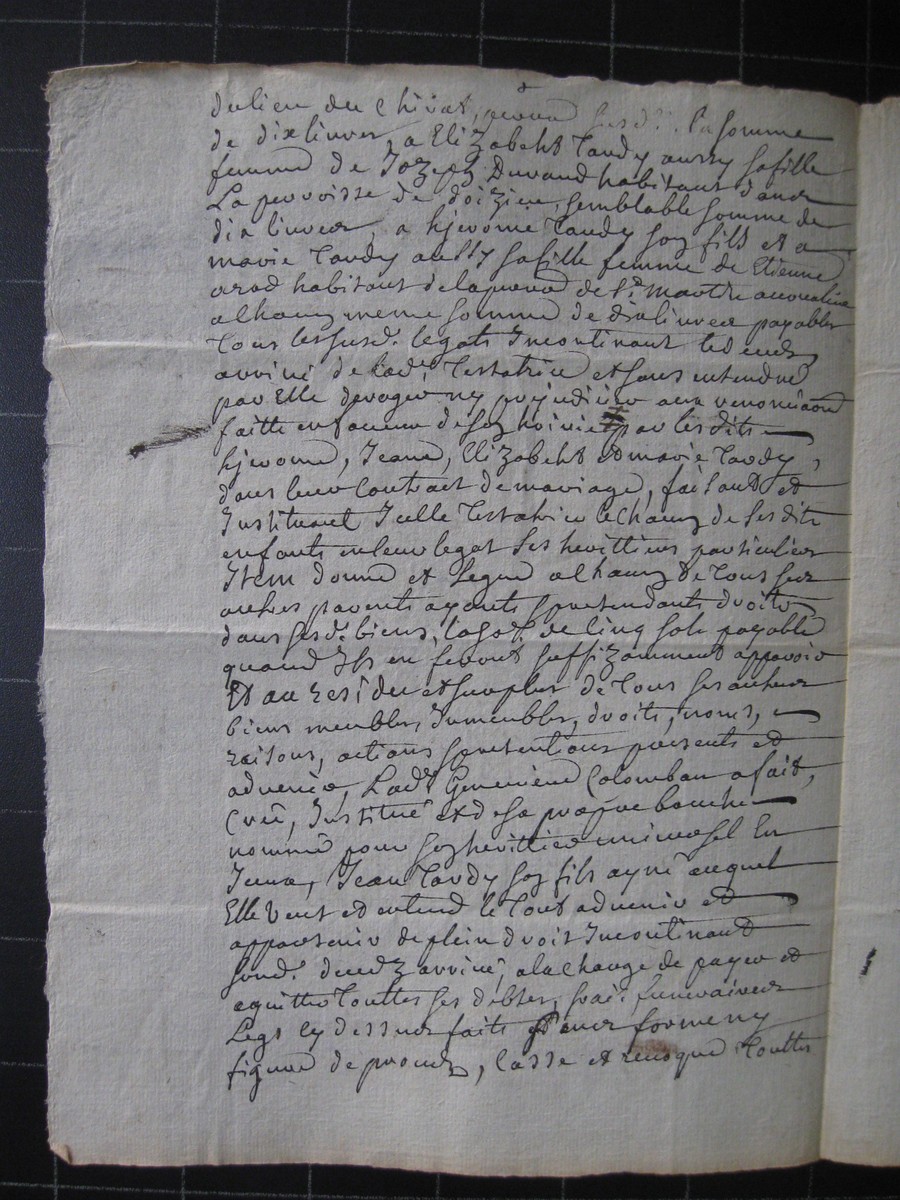 du lieu du Chirat, susd. la somme
de dix livres, a Elizabeht Tardy aussy sa fille
femme de Jozeph Durand habitant dans
La parroisse de doizieu, semblable somme de
dix livres, a hjerome Tardy soy fils et a
marie Tardy aussy sa fille femme de Etienne
habitant de la parro de St. Marthi
a chacuy meme somme de dix livres payables
Tous les susd. legats Incontinant led decedz
arrivé de lad. Testatrice et sans entendre
par Elle deroger ny prejudicier aux renonciaons
faitte en faveur de soy par lesdits
hjerome, Jeane, Elizabeht et marie Tardy,
dans leur Contract de mariage, faisant et
Instituant Icelle Testatrice Chacuy de sesdits
enfants en leur legat ses herittiers particuliers
Item donne et Legue a chacuy de Tous ses
autres parents ayants & pretendants droits
dans sesd. biens, la so. de Cinq sols payable
quand Ils en feront suffizamment apparoir
Et au residu et surplus de Tous ses autres
biens meubles, Immeubles, droits, noms,
raisons, actions & pretentions presents et
advenir, Lad. Genevieve Colomban a fait,
Créé, Institué et de sa propre bouche
nommé pour soy herittier universel
Jean Tardy soy fils ayné auquel
Elle Veut et entend le Tout advenir et
appartenir de plein droit Incontinand
sond. decedz arrivé, a la charge de payer et
aquitter Touttes ses debtes, frais funeraires
Legs Cy dessus faits sans forme ny
figure de procez, Casse et revoque Touttes